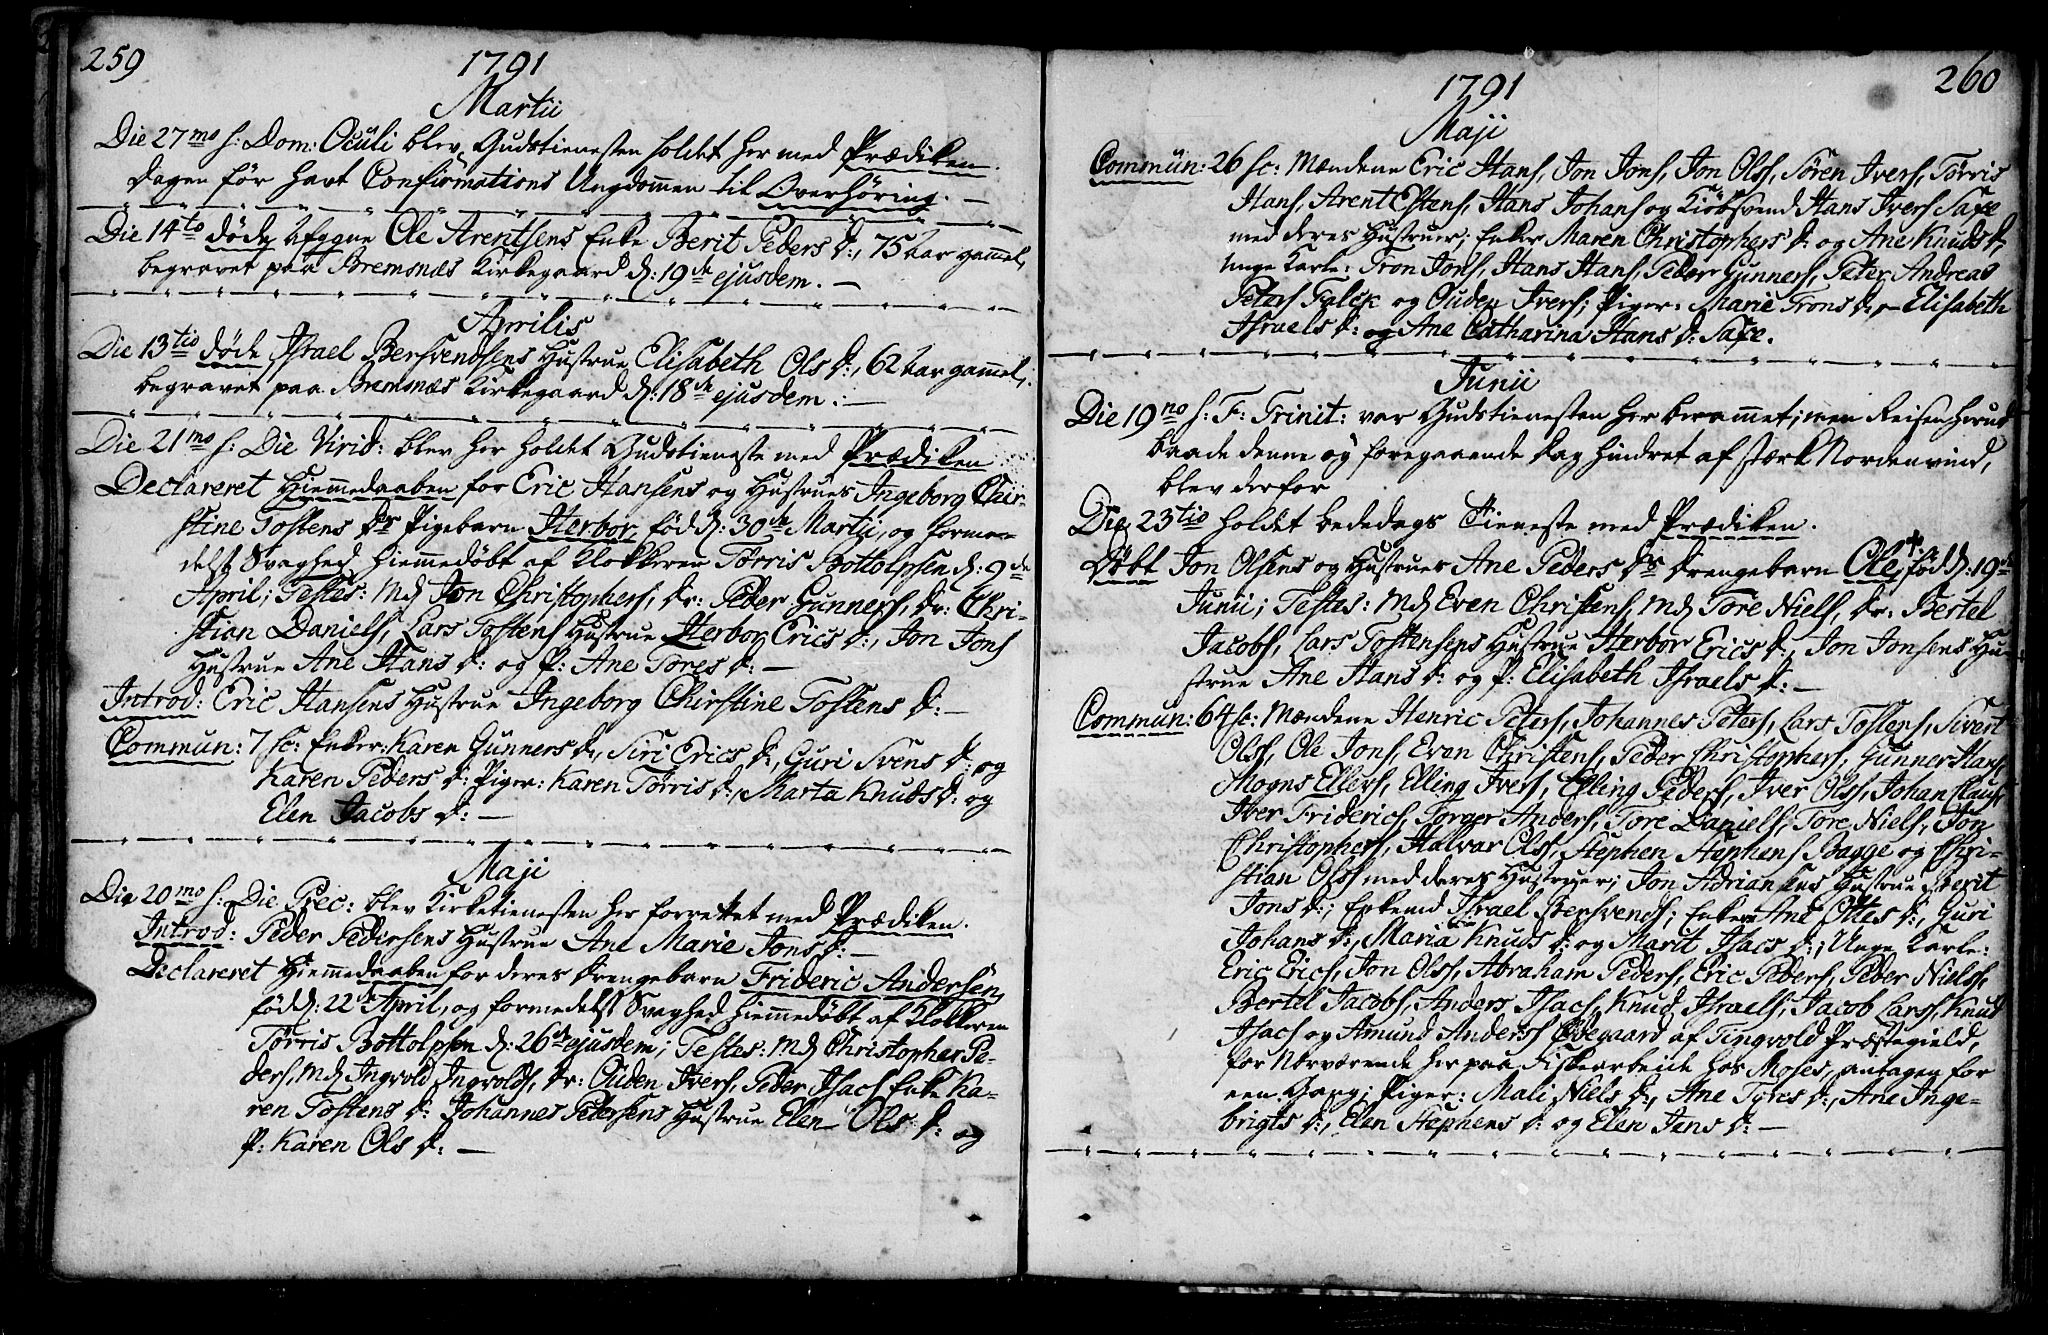 259
1791
Martii
Die 27mo s: Dom: Oculi blev Gudstienesten holdet her med Prædiken.
Dagen før havt Confirmations Ungdommen til Overhøring. —
Die 14to døde Ole Arentsens Enke Berit Peders D:, 75 Aar gammel,
begravet paa Bremsnæs Kirkegaard d: 19de ejusdem. —
Aprilis
Die 13tio døde Israel Bersvendsens Hustrue Elisabeth Ols D:, 62 Aar gammel,
begravet paa Bremsnæs Kirkegaard d: 18de ejusdem: —
Die 21mo s: Die Virid: blev her holdet Gudstieneste med Prædiken
Declareret Hiemmedaaben for Eric Hansens og Hustrues Ingeborg Chir-
stine Tostens Drs Pigebarn Herbor, fød d: 30de Martii, og forme-
delst Svaghed hiemmedøbt af Klokkeren Tørris Bottolphsen d: 9de
April; Testes: Md Jon Christophers, Dr: Peder Gunners, Dr: Chri-
stian Daniels, Lars Tostens Hustrue Herbor Erics D:, Jon Jons
Hustrue Ane Hans D: og P: Ane Tores D: —
Introd: Eric Hansens Hustrue Ingeborg Chirstine Tostens D: —
Commun: 7 sc: Enker: Karen Gunners D:, Siri Erics D:, Guri Svens D: og
Karen Peders D: Piger: Karen Tørris D:, Marta Knuds D: og
Elen Jacobs D: —
Maji
Die 20mo s: Die Prec: blev Kirketienesten her forrettet med Prædiken.
Introd: Peder Pedersens Hustrue Ane Marie Jons D: —
Declareret Hiemmedaaben for deres Drengebarn Frideric Andersen,
fød d: 22de April, og formedelst Svaghed hiemmedøbt af Klokkeren
Tørris Bottolphsen d: 26de ejusdem; Testes: Md Christopher Pe-
ders, Md Ingvold Ingvolds, Dr: Ouden Ivers, Peder Isacs Enke Ka-
ren Tostens D: Johannes Petersens Hustrue Elen Ols D: og
P: Karen Ols D: —
260
1791
Maji
Commun: 26 sc: Mændene Eric Hans, Jon Jons, Jon Ols, Søren Ivers, Tørris
Hans, Arent Estens, Hans Johans og Kiøbsvend Hans Ivers Saxe
med deres Hustruer; Enker Maren Christophers D: og Ane Knuds D:
Unge Karle: Tron Jons, Hans Hans, Peder Gunners, Peter Andreas
Peters Falck og Ouden Ivers; Piger: Marie Trons D:, Elisabeth
Israels D: og Ane Catharina Hans D: Saxe.
Junii
Die 19no s: F: Trinit: var Gudstienesten her berammet; men Reisen herud
baade denne og foregaaende Dag hindret af stærk Nordenvind,
blev derfor
Die 23tio holdet bededags Tieneste med Prædiken.
Døbt Jon Olsens og Hustrues Ane Peders Drs Drengebarn Ole, fød d: 19de
Junii; Testes: Md Even Christens, Md Tore Niels, Dr: Bertel
Jacobs, Lars Tostensens Hustrue Herbor Erics D:, Jon Jonsens Hu-
strue Ane Hans D: og P: Elisabeth Israels D: —
Commun: 64 sc: Mændene Henric Peters, Johannes Peters, Lars Tostens, Sivert
Ols, Ole Jons, Even Christens, Peder Christophers, Gunner Hans,
Mogns Ellers, Elling Ivers, Elling Peders, Iver Ols, Johan Claus
Iver Friderics, Torger Anders, Tore Daniels, Tore Niels, Jon
Christophers, Halvar Ols, Stephen Stephens Bagge og Chri-
stian Ols med deres Hustruer; Jon Adriansens Hustrue Berit
Jons D:; Enkemd Israel Bersvends; Enkene Ane Ottes D:, Guri
Johans D:, Maria Knuds D: og Marit Isacs D:; Unge Karle:
Eric Erics, Jon Ols, Abraham Peders, Eric Peders, Peder Niels,
Bertel Jacobs, Anders Isacs, Knud Israels, Jacob Lars, Knud
Isacs og Amund Anders Ødegaard af Tingvold Præstegield,
for Nærværende her paa Fiskearbeide hos Moses, antagen for
een Gang; Piger: Mali Niels D:, Ane Tores D:, Ane Inge-
brigts D:, Elen Stephens D: og Elen Jens D: —